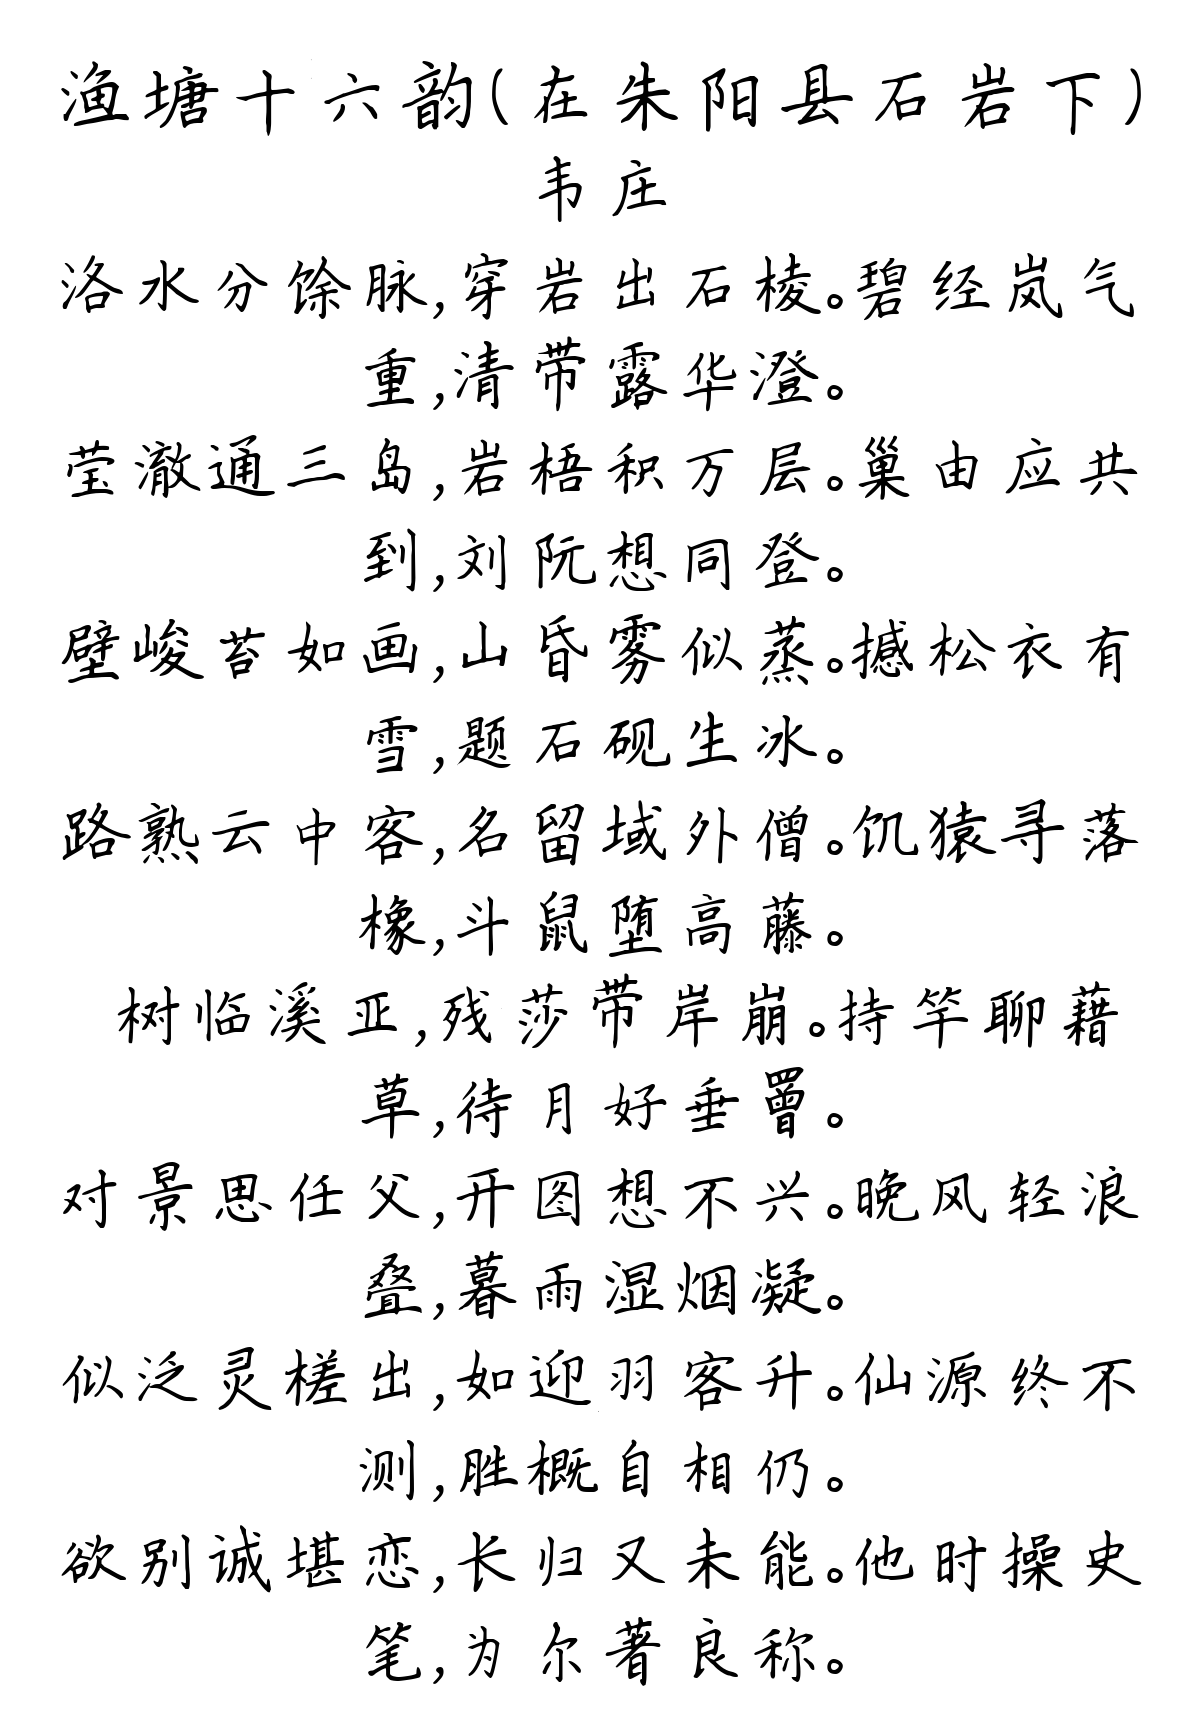 渔塘十六韵(在朱阳县石岩下)
韦庄
洛水分馀脉,穿岩出石棱。碧经岚气
重,清带露华澄。
莹澈通三岛,岩梧积万层。巢由应共
到,刘阮想同登。
壁峻苔如画,山昏雾似蒸。撼松衣有
雪,题石砚生冰。
路熟云中客,名留域外僧。饥猿寻落
橡,斗鼠堕高藤。
树临溪亚,残莎带岸崩。持竿聊藉
草,待月好垂罾。
对景思任父,开图想不兴。晚风轻浪
叠,暮雨湿烟凝。
似泛灵槎出,如迎羽客升。仙源终不
测,胜概自相仍。
欲别诚堪恋,长归又未能。他时操史
笔,为尔著良称。